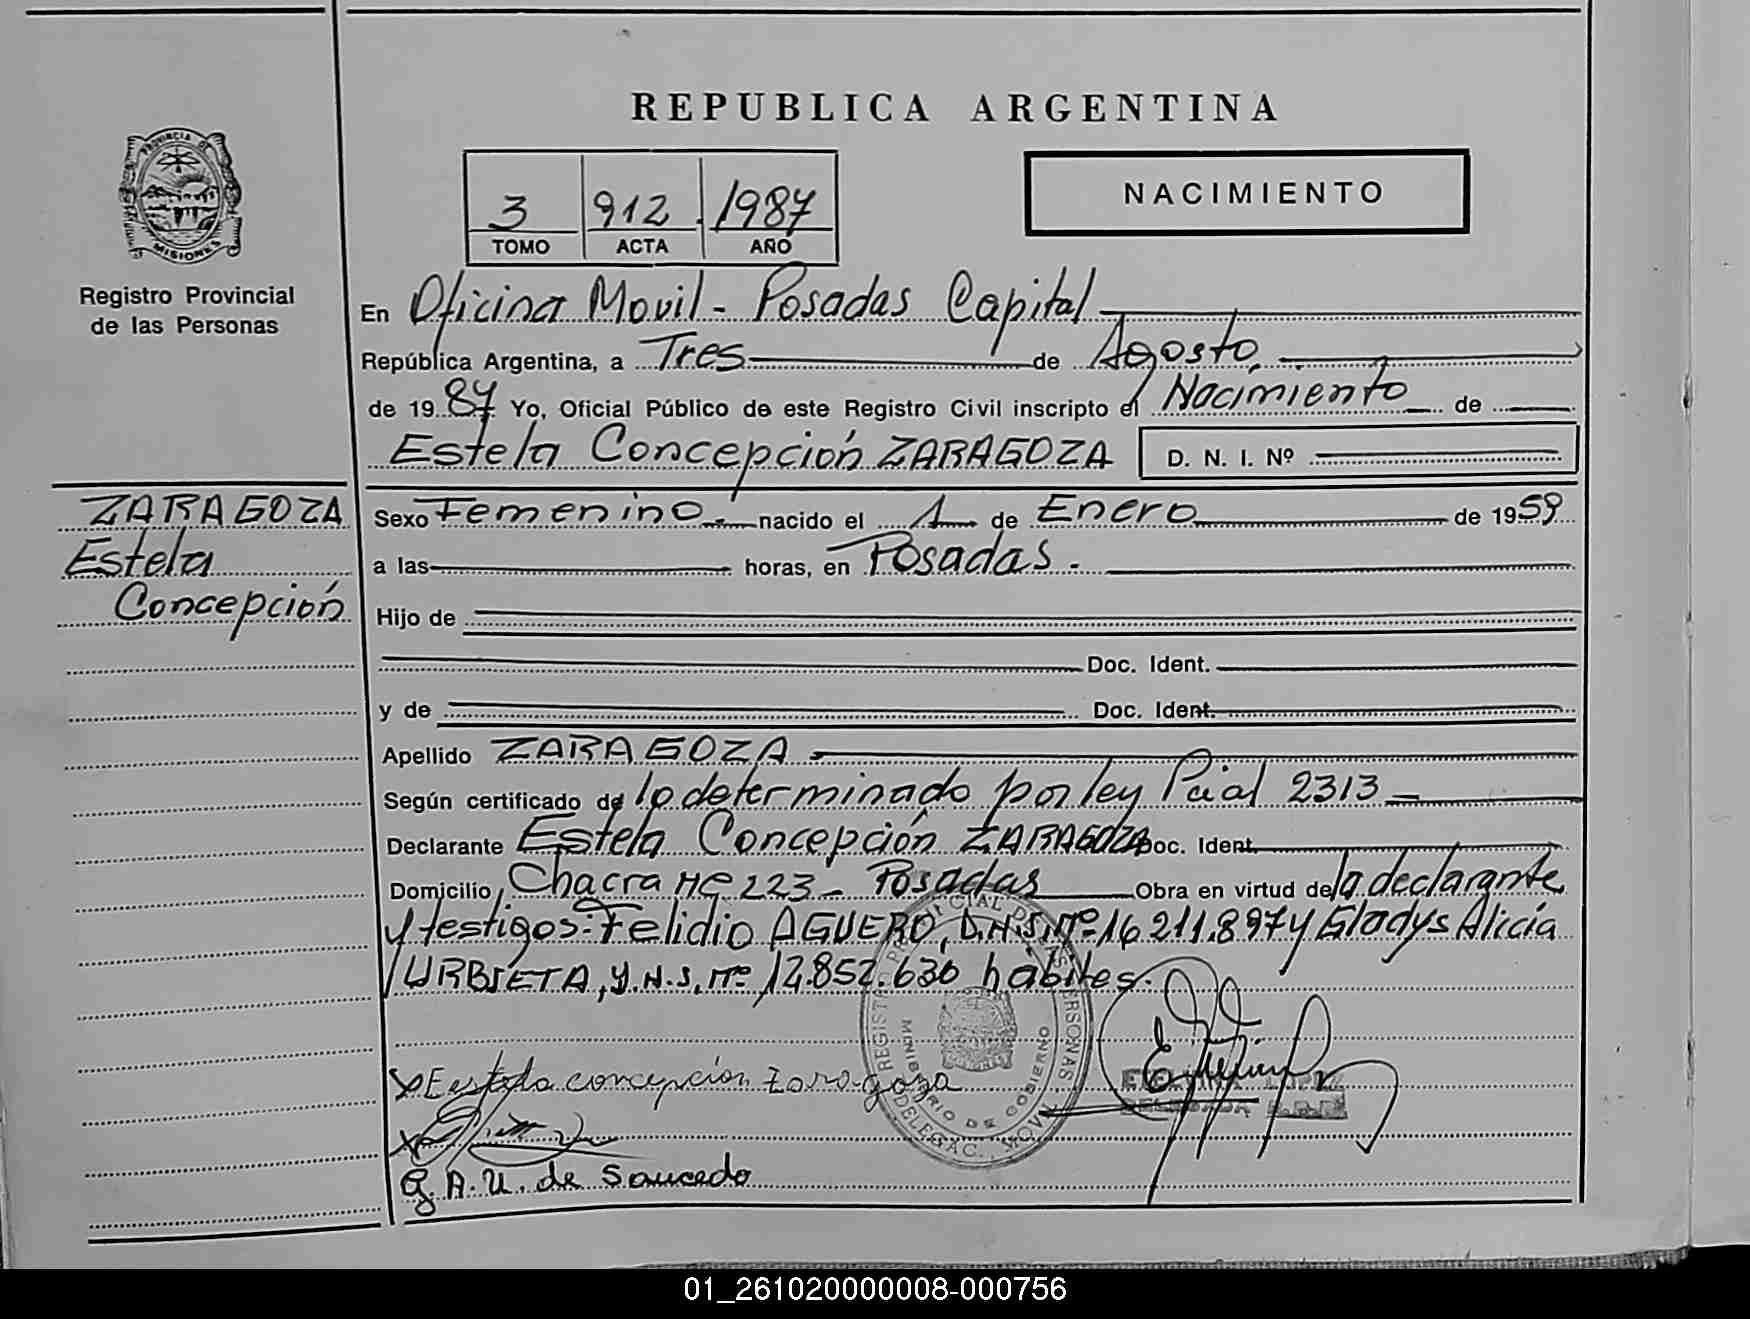 REPUBLICA ARGENTINA
PROVINCIA DE
MISIONES
Registro Provincial
de las Personas
3 912 1987
TOMO ACTA AÑO
NACIMIENTO
En Oficina Movil - Posadas Capital
República Argentina, a Tres de Agosto
de 1987 Yo, Oficial Público de este Registro Civil inscripto el Nacimiento de
Estela Concepción ZARAGOZA D. N. I. Nº
ZARAGOZA
Estela
Concepción
Sexo Femenino.- nacido el 1 de Enero de 1959
a las horas, en Posadas.-
Hijo de
Doc. Ident.
y de Doc. Ident.
Apellido ZARAGOZA
Según certificado de lo determinado por ley Pcial 2313
Declarante Estela Concepción ZARAGOZA Doc. Ident.
Domicilio Chacra 223 - Posadas Obra en virtud de la declarante
y testigos: Felidio AGUERO, Nº 16.211.897 y Gladys Alicia
URBIETA, Nº 12.852.630 hábiles.
Eestela concepción Zaragoza
G A. U. de Saucedo
REGISTRO PROVINCIAL DE LAS PERSONAS
MINISTERIO DE GOBIERNO
DELEGAC. MOVIL
LOPEZ
DELEGADA
01_261020000008-000756